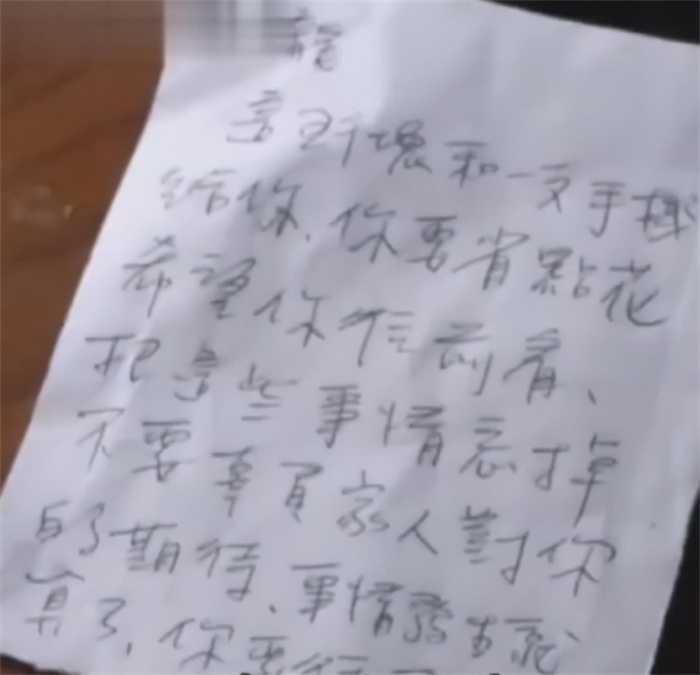 這 塊和一支手機
給你、你要省點花
希望你往前看、
把這些事情忘掉
不要辜負家人對你
的期待、事情發生就
算了、你要